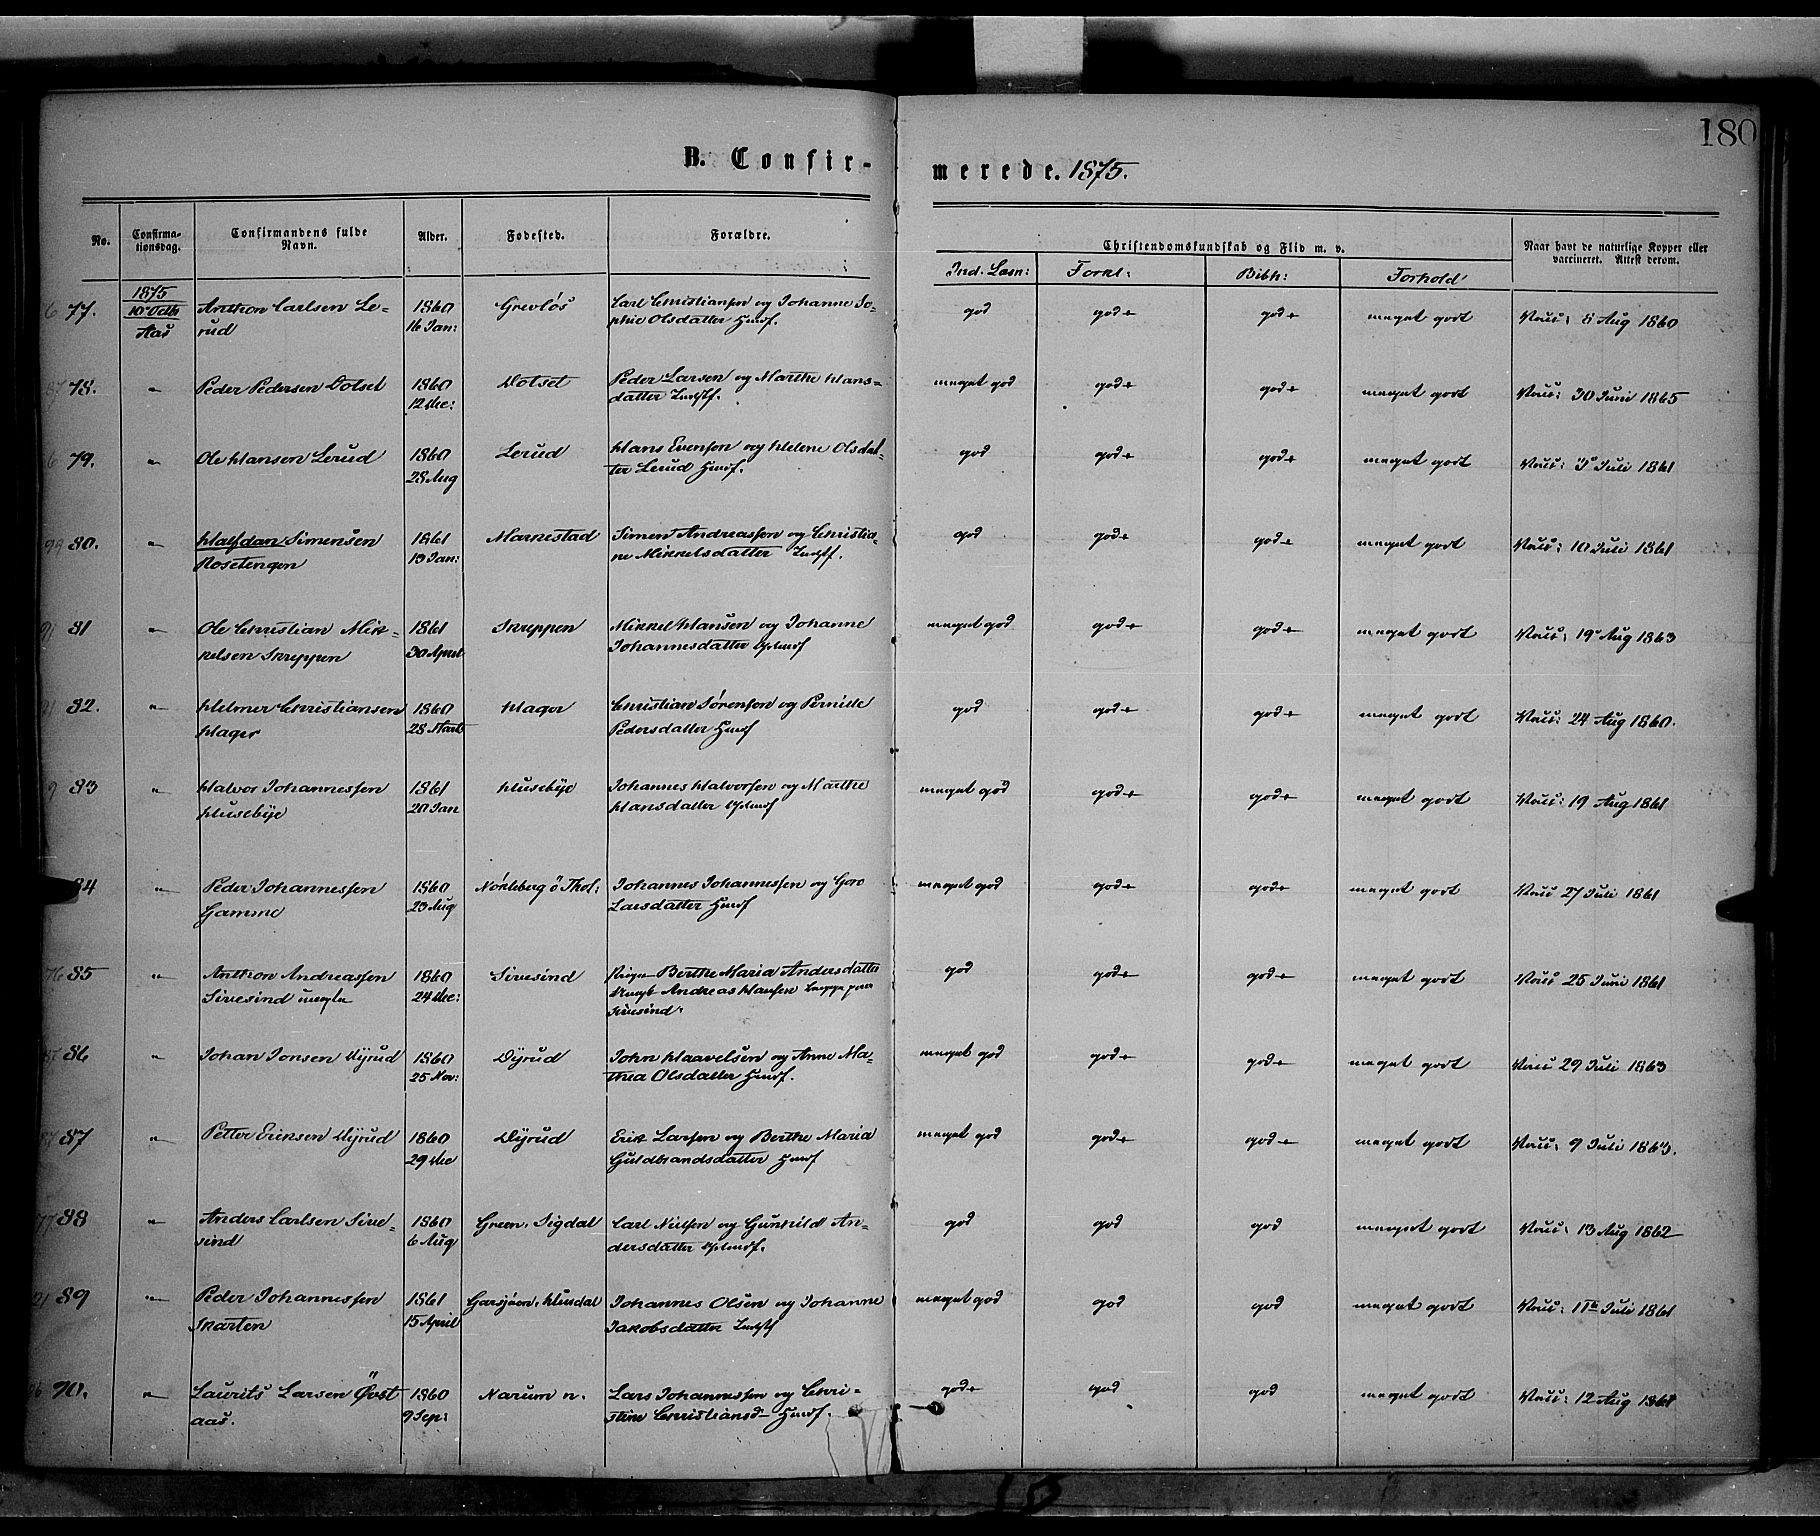 180
B. Confir-
merede. 1875.
No.
Confirma-
tionsdag.
Confirmandens fulde
Navn.
Alder.
Fødested.
Forældre.
Christendomskundskab og Flid m. v.
Ind. Læsn:
Forkl:
Bibh:
Forhold
Naar havt de naturlige Kopper eller
vaccineret. Attest derom.
1875
10 Octb
Aas
77. Anthon Carlsen Le-
rud
1860
16 Jan:
Grevløs
Carl Christiansen og Johanne So-
phie Olsdatter Husmf.
god god+ god+ meget godt Vacc: 8 Aug 1860
78. " Peder Pedersen Dotset
1860
12 Dec:
Dotset
Peder Larsen og Marthe Hans-
datter Indstf.
meget god god+ god+ meget godt Vacc: 30 Juni 1865
79. " Ole Hansen Lerud
1860
28 Aug
Lerud
Hans Evensen og Helene Olsdat-
ter Lerud Husmf.
god god+ god+ meget godt Vacc: 3 Juli 1861
80. " Halfdan Simensen
Rosetengen
1861
13 Jan:
Marnestad
Simen Andreassen og Christia-
ne Mikkelsdatter Indstf.
god god+ god+ meget godt Vacc: 10 Juli 1861
81 " Ole Christian Mik-
kelsen Skreppen
1861
30 April
Skreppen
Mikkel Hansen og Johanne
Johannesdatter
meget god god+ god+ meget godt Vacc: 19 Aug 1863
82. " Helmer Christiansen
Hager
1860
28 Marts
Hager
Christian Sørensen og Pernille
Pedersdatter Husmf
god god+ god+ meget godt Vacc: 24 Aug 1860.
83 " Halvor Johannessen
Husebye
1861
20 Jan
Husebye
Johannes Halvorsen og Marthe
Hansdatter
meget god god+ god+ meget godt Vacc: 19 Aug 1861
84 " Peder Johannessen
Gamme
1860
23 Aug
Nøkleberg ö Thot:
Johannes Johannessen og Goro
Larsdatter Husmf
meget god god+ god+ meget godt Vacc 27 Juli 1861
85 " Anthon Andreassen
Sivesind uægte
1860
24 Dec:
Sivesind
Pige Berthe Maria Andersdatter
Ungk Andreas Hansen
god god+ god+ meget godt Vacc 25 Juni 1861
86 " Johan Jonsen Dyrud
1860
25 Nov:
Dyrud
John Haavelsen og Anne Ma-
thea Olsdatter Husmf.
meget god god+ god+ meget godt Vacc 29 Juli 1863
87 " Petter Eriksen Dyrud
1860
29 Dec
Dyrud
Erik Larsen og Berthe Maria
Guldbrandsdatter Husmf
meget god god+ god+ meget godt Vacc: 9 Juli 1863.
88 " Anders Carlsen Sive-
sind
1860
6 Aug
Green, Sigdal
Carl Nielsen og Gunhild An-
dersdatter
god god god meget godt Vacc: 13 Aug 1862
89 " Peder Johannessen
Skarten
1861
15 April
Garsjøen, Hurdal
Johannes Olsen og Johanne
Jakobsdatter Indstf
meget god god god meget godt Vacc: 11 Juli 1861
90. " Laurits Larsen Övst
aas.
1860
9 Sep:
Narum n.
Lars Johannessen og Chri-
stine Christiansd- Husmf.
god+ god god meget godt Vacc: 12 Aug 1861